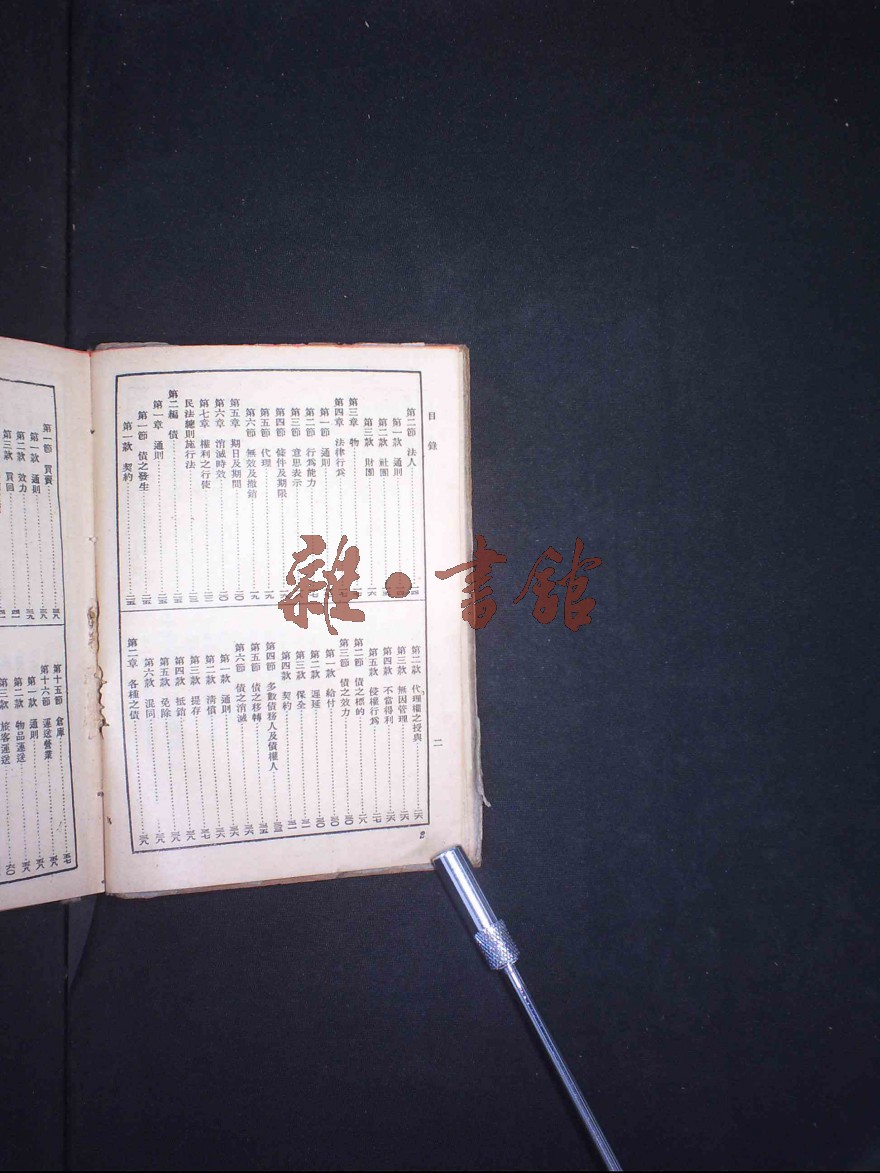 目錄
二
第二節 法人
第一款 通則
第二款 社團
第三款 財團
第三章 物
第四章 法律行為
第一節 通則
第二節 行為能力
第三節 意思表示
第四節 條件及期限
第五節 代理
第六節 無效及撤銷
第五章 期日及期間
第六章 消滅時效
第七章 權利之行使
民法總則施行法
第二編 債
第一章 通則
第一節 債之發生
第一款 契約
第二款 代理權之授與
第三款 無因管理
第四款 不當得利
第五款 侵權行為
第二節 債之標的
第三節 債之效力
第一款 給付
第二款 遲延
第三款 保全
第四款 契約
第四節 多數債務人及債權人
第五節 債之移轉
第六節 債之消滅
第一款 通則
第二款 清償
第三款 提存
第四款 抵銷
第五款 免除
第六款 混同
第二章 各種之債
2
第一節 買賣
第一款 通則
第二款 效力
第三款 買回
第十五節 倉庫
第十六節 運送營業
第一款 通則
第二款 物品運送
第三款 旅客運送
雜·書館